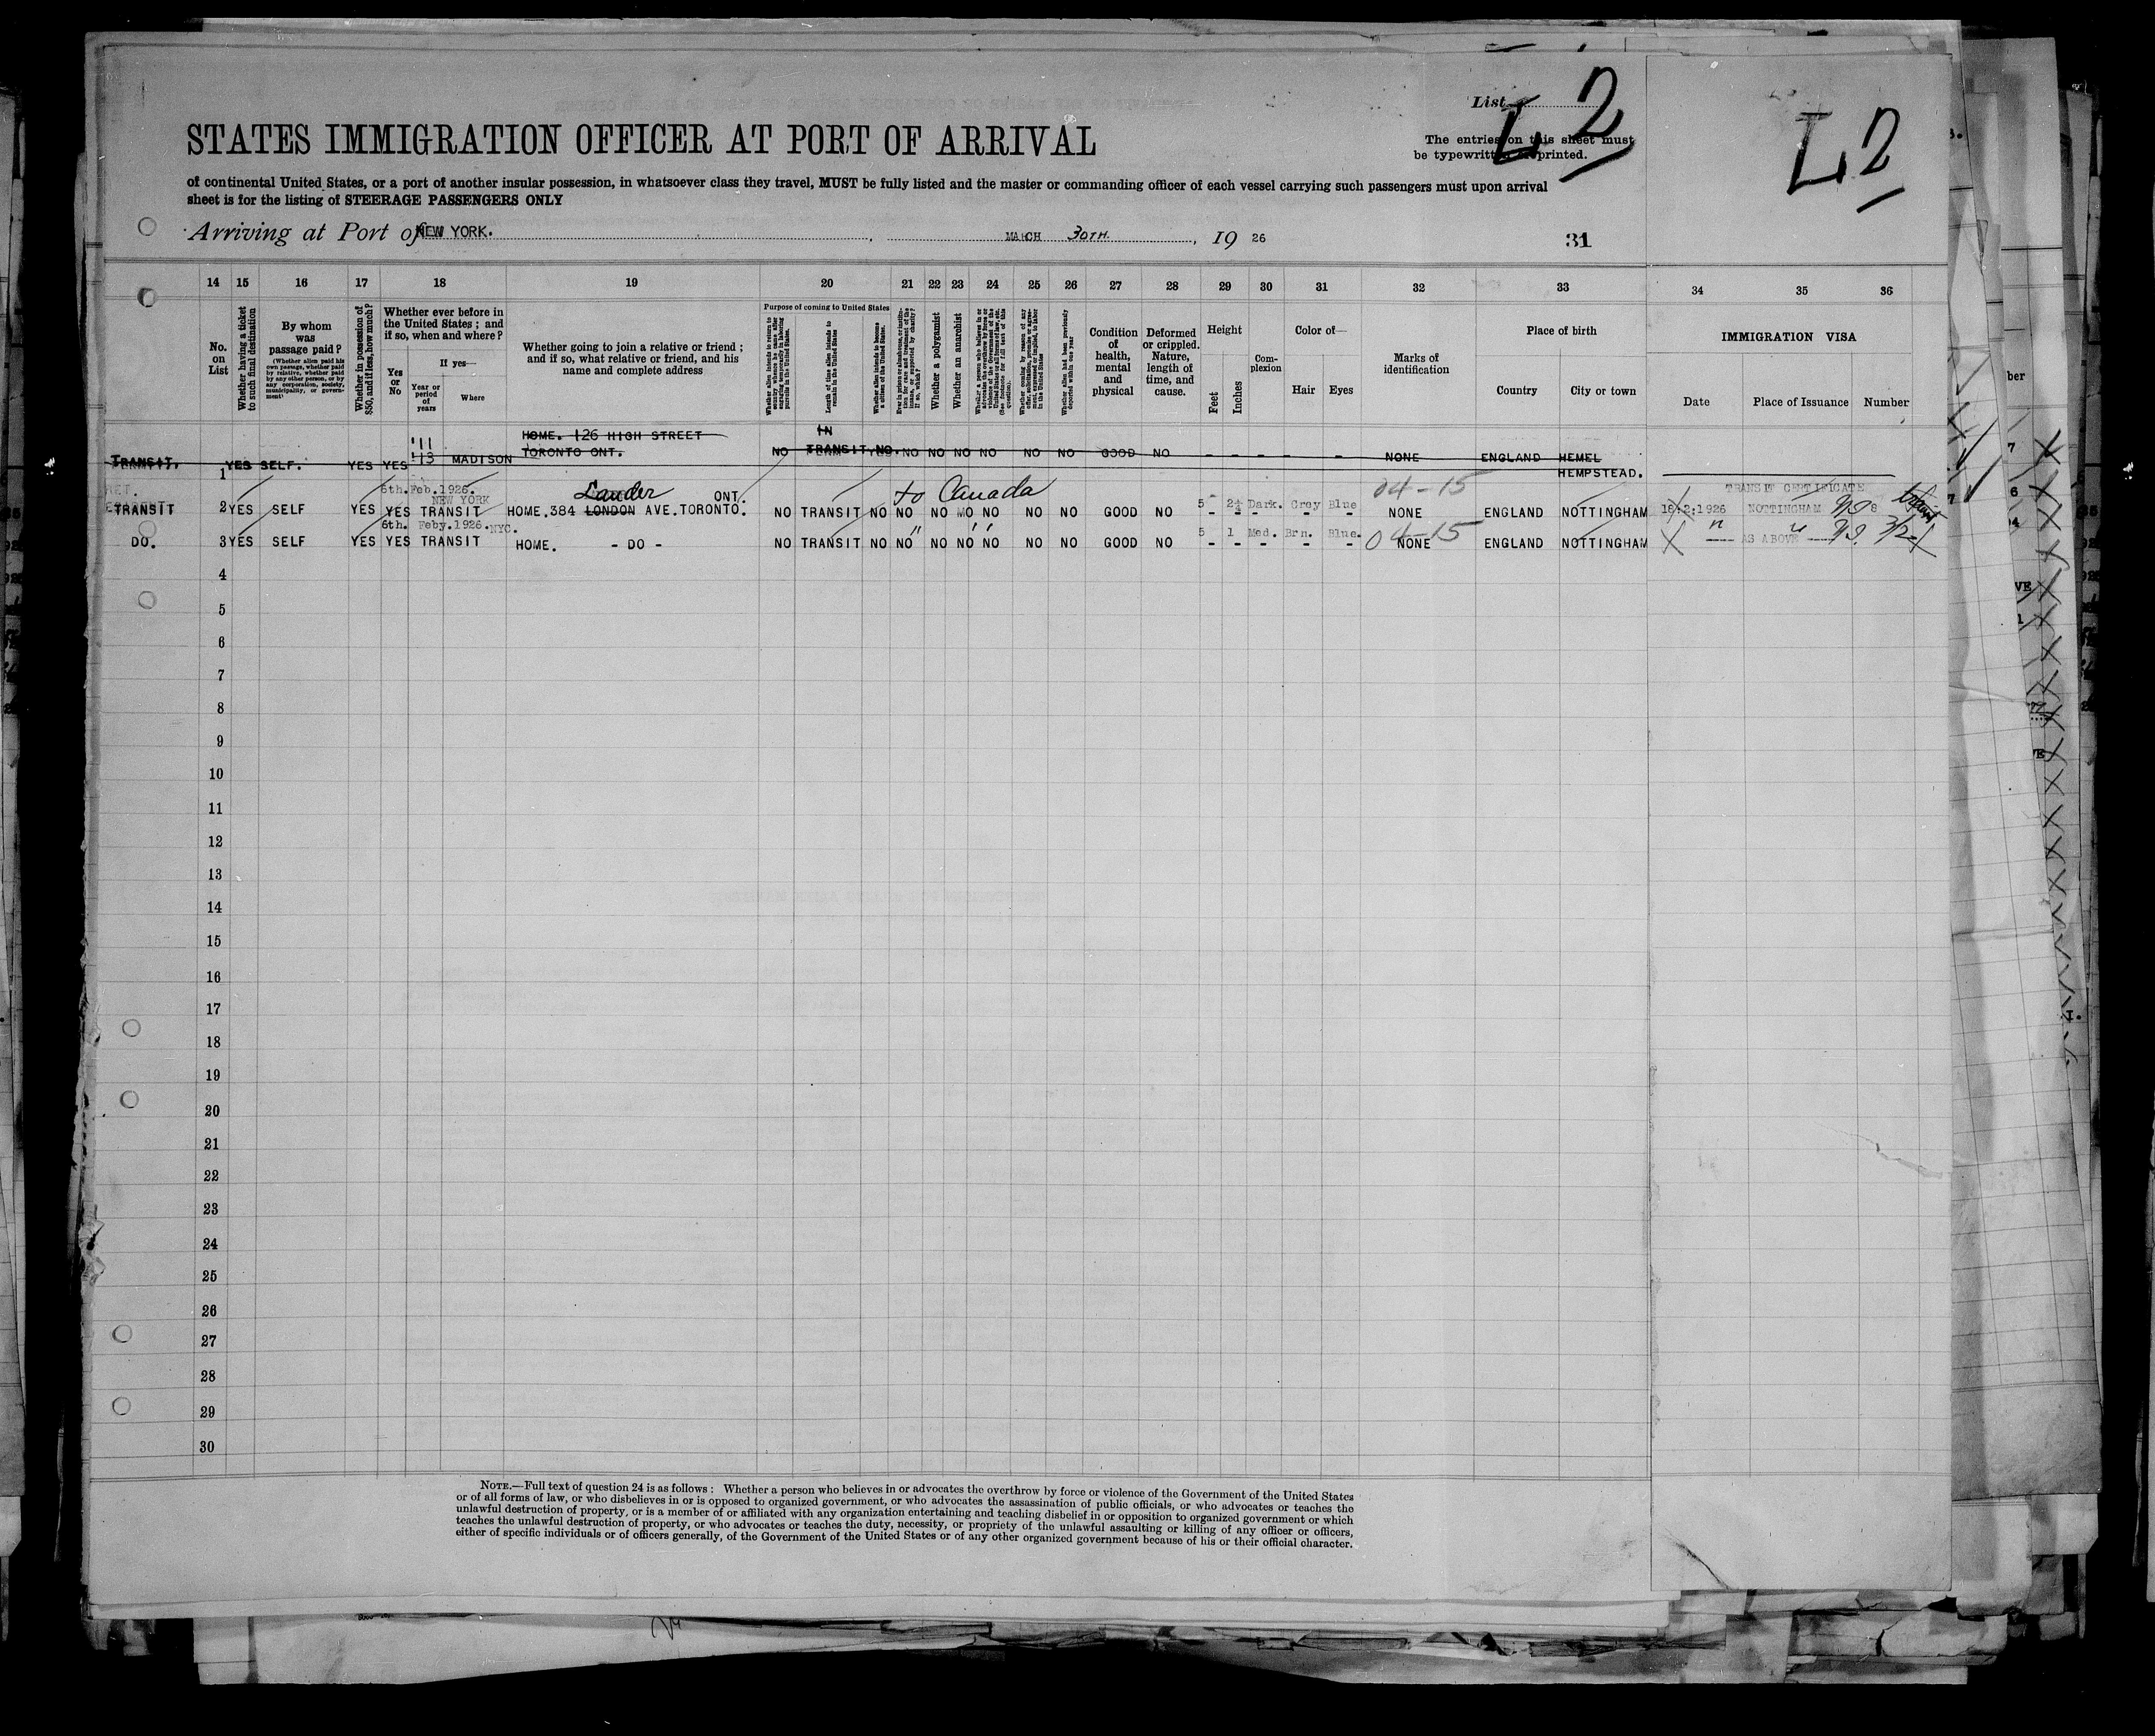 List L 2
STATES IMMIGRATION OFFICER AT PORT OF ARRIVAL
The entries on this sheet must
be typewritten or printed.
L 2
of continental United States, or a port of another insular possession, in whatsoever class they travel, MUST be fully listed and the master or commanding officer of each vessel carrying such passengers must upon arrival
sheet is for the listing of STEERAGE PASSENGERS ONLY
Arriving at Port of NEW YORK. , MARCH 30TH. , 19 26
31
14 15 16 17 18 19 20 21 22 23 24 25 26 27 28 29 30 31 32 33 34 35 36
No. on List
Whether having a ticket to such final destination
By whom was passage paid?
(Whether alien paid his own passage, whether paid by relative, whether paid by any other person, or by any corporation, society, municipality, or government)
Whether in possession of $50, and if less, how much?
Whether ever before in the United States; and if so, when and where?
Yes or No
If yes—
Year or period of years
Where
Whether going to join a relative or friend; and if so, what relative or friend, and his name and complete address
Purpose of coming to United States
Whether alien intends to return to country whence he came after engaging temporarily in laboring pursuits in the United States.
Length of time alien intends to remain in the United States
Whether alien intends to become a citizen of the United States.
Ever in prison or almshouse, or institution for care and treatment of the insane, or supported by charity? If so, which?
Whether a polygamist
Whether an anarchist
Whether a person who believes in or advocates the overthrow by force or violence of the Government of the United States or all forms of law, etc. (See footnote for full text of this question).
Whether coming by reason of any offer, solicitation, promise or agreement, expressed or implied, to labor in the United States
Whether alien had been previously deported within one year
Condition of health, mental and physical
Deformed or crippled. Nature, length of time, and cause.
Height
Feet
Inches
Com-plexion
Color of—
Hair
Eyes
Marks of identification
Place of birth
Country
City or town
IMMIGRATION VISA
Date
Place of Issuance
Number
'11 HOME. 126 HIGH STREET IN
TRANSIT. 1 YES SELF. YES YES '13 MADISON TORONTO ONT. NO TRANSIT NO. NO NO NO NO NO NO GOOD NO - - - - - NONE ENGLAND HEMEL
HEMPSTEAD.
6th.Feb.1926. Lauder ONT. to Canada 04-15 TRANSIT CERTIFICATE
NEW YORK
TRANSIT 2 YES SELF YES YES TRANSIT HOME.384 LONDON AVE.TORONTO. NO TRANSIT NO NO NO NO NO NO NO GOOD NO 5 2½ Dark. Grey Blue NONE ENGLAND NOTTINGHAM 18:2:1926 NOTTINGHAM
6th. Feby.1926. NYC.
DO. 3 YES SELF YES YES TRANSIT HOME. - DO - NO TRANSIT NO NO NO NO NO NO NO GOOD NO 5 1 Med. Brn. Blue. 04-15 NONE ENGLAND NOTTINGHAM " " AS ABOVE
4
5
6
7
8
9
10
11
12
13
14
15
16
17
18
19
20
21
22
23
24
25
26
27
28
29
30
NOTE.—Full text of question 24 is as follows: Whether a person who believes in or advocates the overthrow by force or violence of the Government of the United States
or of all forms of law, or who disbelieves in or is opposed to organized government, or who advocates the assassination of public officials, or who advocates or teaches the
unlawful destruction of property, or is a member of or affiliated with any organization entertaining and teaching disbelief in or opposition to organized government or which
teaches the unlawful destruction of property, or who advocates or teaches the duty, necessity, or propriety of the unlawful assaulting or killing of any officer or officers,
either of specific individuals or of officers generally, of the Government of the United States or of any other organized government because of his or their official character.